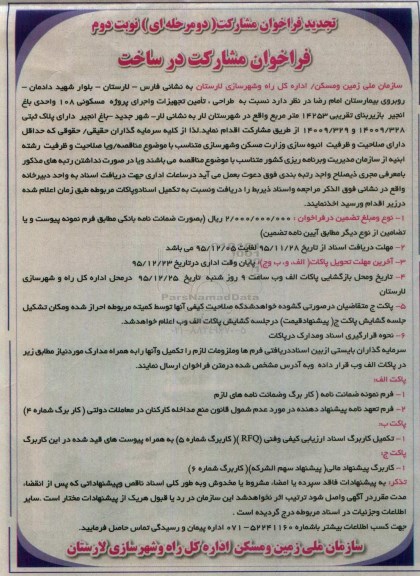 تجدید فراخوان مشارکت( دومرحله ای ) نوبت دوم
فراخوان مشارکت در ساخت
سازمان ملی زمین ومسکن/ اداره کل راه وشهرسازی لارستان به نشانی فارس – لارستان – بلوار شهید دادمان –
روبروی بیمارستان امام رضا در نظر دارد نسبت به طراحی ، تأمین تجهیزات واجرای پروژه مسکونی ۱۰۸ واحدی باغ
انجیر بازیربنای تقریبی ۱۴۲۵۳ متر مربع واقع در شهرستان لار به نشانی لار- شهر جدید –باغ انجیر دارای پلاک ثبتی
۱۴۰۰۹/۳۲۸ و ۱۴۰۰۹/۳۲۹ از طریق مشارکت اقدام نماید.لذا از کلیه سرمایه گذاران حقیقی/ حقوقی که حداقل
دارای صلاحیت و ظرفیت انبوه سازی وزارت مسکن وشهرسازی متناسب با موضوع مناقصه/ویا صلاحیت و ظرفیت رشته
ابنیه از سازمان مدیریت وبرنامه ریزی کشور متناسب با موضوع مناقصه می باشند ویا در صورت نداشتن رتبه های مذکور
بامعرفی مجری ذیصلاح واجد رتبه بندی فوق دعوت بعمل می آید درساعات اداری جهت دریافت اسناد به واحد دبیرخانه
واقع در نشانی فوق الذکر مراجعه واسناد ذیربط را دریافت ونسبت به تکمیل اسنادوپاکات مربوطه طبق زمان اعلام شده
درزیر اقدام ورسید اخذنمایند.
۱- نوع ومبلغ تضمین درفراخوان : ۲/۰۰۰/۰۰۰/۰۰۰ ریال (بصورت ضمانت نامه بانکی مطابق فرم نمونه پیوست و یا
تضامین از نوع دیگر مطابق آیین نامه تضمین)
۲- مهلت دریافت اسناد از تاریخ ۹۵/۱۱/۲۸ لغایت ۹۵/۱۲/۰۵ می باشد
۳- آخرین مهلت تحویل پاکات( الف، و، ب وج)، پایان وقت اداری درتاریخ ۹۵/۱۲/۲۳
۴- تاریخ ومحل بازگشایی پاکات الف وب ساعت ۹ روز شنبه تاریخ ۹۵/۱۲/۲۵ درمحل اداره کل راه و شهرسازی
لارستان
۵- پاکت ج متقاضیان درصورتی گشوده خواهدشدکه صلاحیت کیفی آنها توسط کمیته مربوطه احراز شده ومکان تشکیل
جلسه گشایش پاکت ج( پیشنهادقیمت) درجلسه گشایش پاکات الف وب اعلام خواهدشد.
۶- نحوه قرارگیری اسناد ومدارک درپاکات
سرمایه گذاران بایستی ازبین اسناددریافتی فرم ها وملزومات لازم را تکمیل وآنها رابه همراه مدارک موردنیاز مطابق زیر
در پاکات الف وب قرار داده وبه آدرس مشخص شده درمتن فراخوان ارسال نمایند.
پاکت الف:
۱- فرم نمونه ضمانت نامه ( کار برگ وضمانت نامه های لازم
۲- فرم تعهد نامه پیشنهاد دهنده در مورد عدم شمول قانون منع مداخله کارکنان در معاملات دولتی ( کار برگ شماره ۴)
پاکت ب:
۱- تکمیل کاربرگ اسناد ارزیابی کیفی وفنی (RFQ )( کاربرگ شماره ۵) به همراه پیوست های قید شده در این کاربرگ
پاکت ج:
۱- کاربرگ پیشنهاد مالی( پیشنهاد سهم الشرکه)( کاربرگ شماره ۶)
تذکر: به پیشنهادات فاقد سپرده یا امضا، مشروط یا مخدوش وبه طور کلی اسناد ناقص وپیشنهاداتی که پس از انقضاء
مدت مقرردر آگهی واصل شود ترتیب اثر نخواهدشد این سازمان در رد یا قبول هریک از پیشنهادات مختار است .سایر
اطلاعات وجزئیات در اسناد مربوطه درج گردیده است .
جهت کسب اطلاعات بیشتر باشماره ۵۲۲۴۱۱۶۰-۰۷۱ اداره پیمان و رسیدگی تماس حاصل فرمایید.
سازمان ملی زمین ومسکن اداره کل راه وشهرسازی لارستان
ParsNamadData